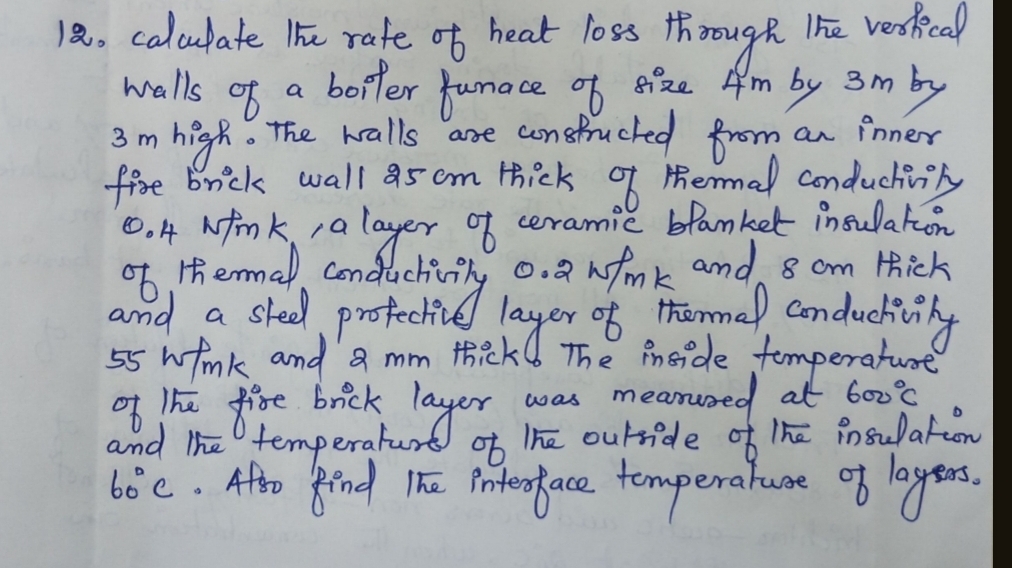 12. calculate the rate of heat loss through the vertical
walls of a boiler funace of size 4m by 3m by
3m high. The walls are constructed from an inner
fire brick wall 25 cm thick of thermal conductivity
0.4 W/mk, a layer of ceramic blanket insulation
of thermal conductivity 0.2 W/mk and 8 cm thick
and a steel protective layer of thermal conductivity
55 W/mk and 2 mm thick. The inside temperature
of the fire brick layer was measured at 600°C
and the temperature of the outside of the insulation
60°C. Also find the interface temperature of layers.